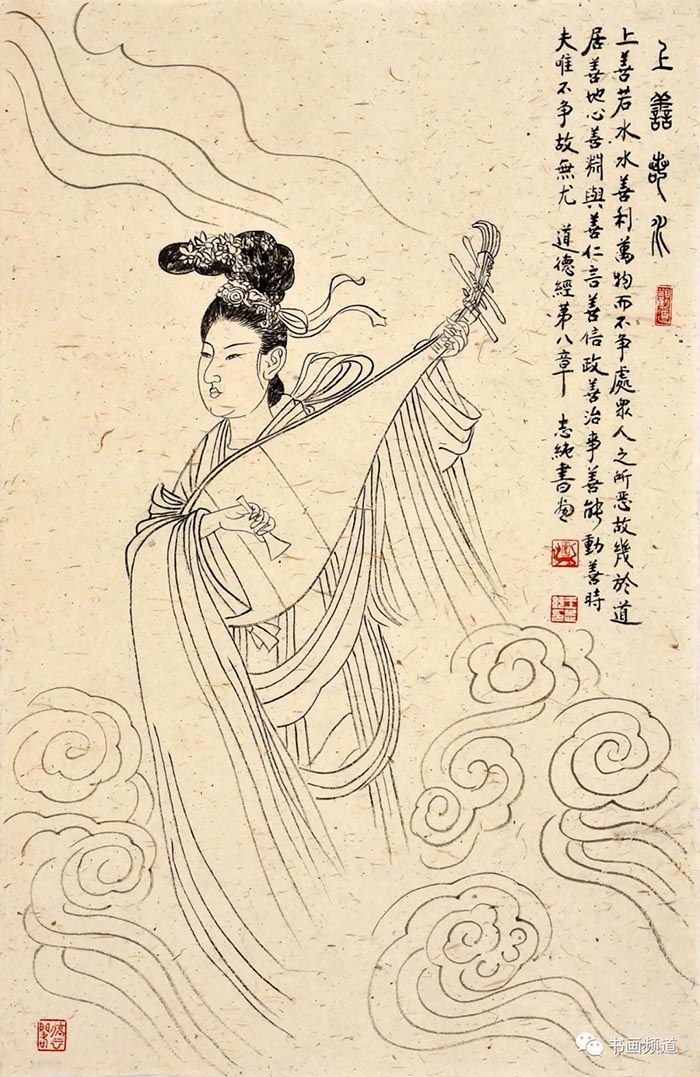 上善若水
上善若水水善利萬物而不争處眾人之所恶故幾於道
居善地心善淵與善仁言善信政善治事善能動善時
夫唯不争故無尤 道德經第八章 志純書畫
书画频道